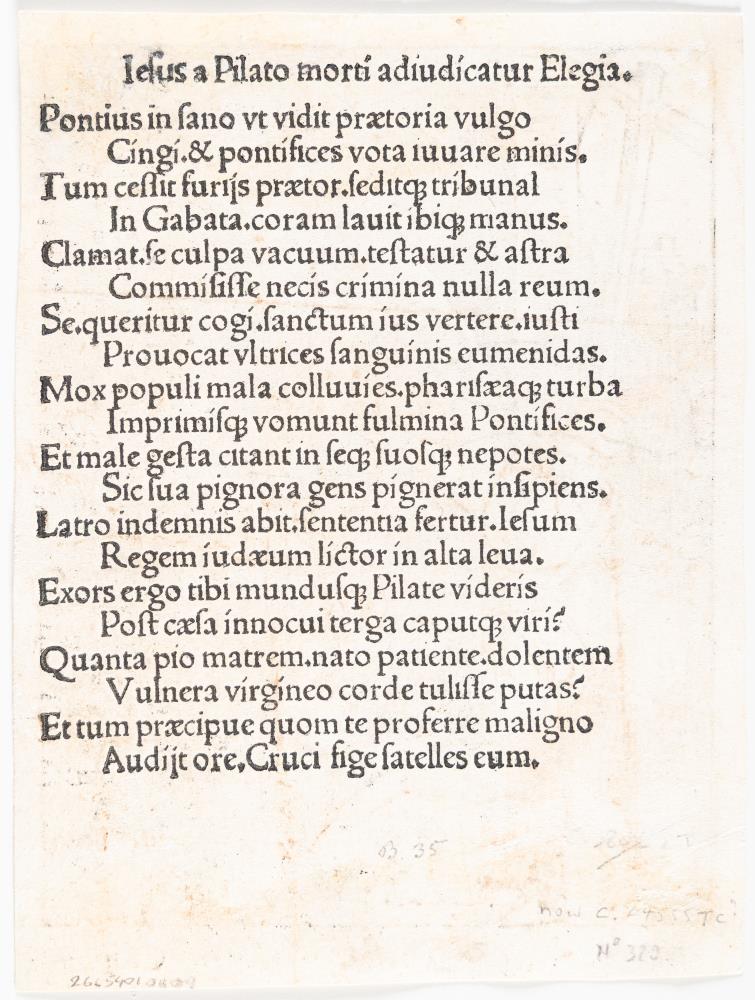 Ieſus a Pilato morti adiudicatur Elegia.
Pontius in ſano vt vidit prætoria vulgo
Cingi.& pontifices vota iuuare minis.
Tum ceſſit furijs prætor.ſeditqꝫ tribunal
In Gabata.coram lauit ibiqꝫ manus.
Clamat.ſe culpa vacuum.teſtatur & aſtra
Commiſiſſe necis crimina nulla reum.
Se.queritur cogi.ſanctum ius vertere.iuſti
Prouocat vltrices ſanguinis eumenidas.
Mox populi mala colluuies.phariſæaqꝫ turba
Imprimiſqꝫ vomunt fulmina Pontifices.
Et male geſta citant in ſeqꝫ ſuoſqꝫ nepotes.
Sic ſua pignora gens pignerat inſipiens.
Latro indemnis abit.ſententia fertur.Ieſum
Regem iudæum lictor in alta leua.
Exors ergo tibi munduſqꝫ Pilate videris
Poſt cæſa innocui terga caputqꝫ viri?
Quanta pio matrem.nato patiente.dolentem
Vulnera virgineo corde tuliſſe putas?
Et tum præcipue quom te proferre maligno
Audijt ore.Cruci fige ſatelles eum.
B. 35
now C.
Nº 329